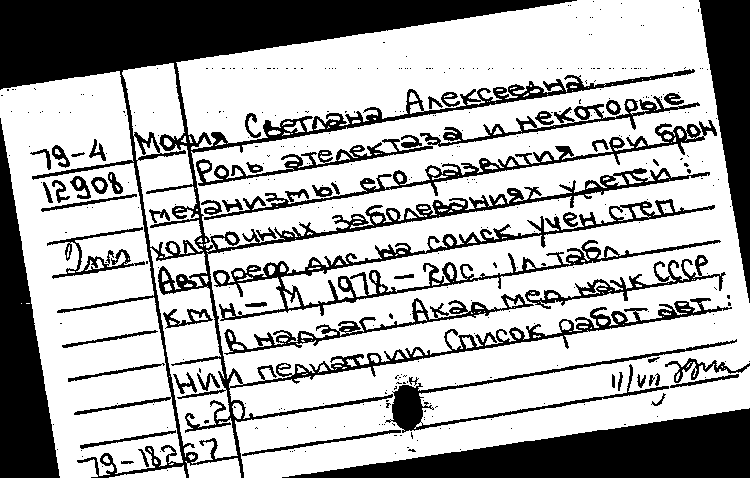 79-4 Мокия, Светлана Алексеевна.
12908 Роль ателектаза и некоторые
механизмы его развития при брон
холегочных заболеваниях у детей:
Автореф. дис. на соиск. учен. степ.
к.м.н. - М., 1978. - 20с.; 1л. табл.
В надзаг.: Акад. мед. наук СССР,
НИИ педиатрии. Список работ авт.:
с.20.
79-18267